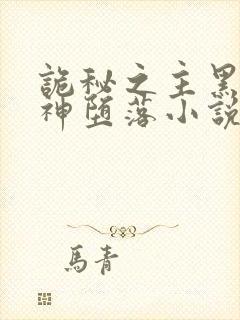 詭秘之主黑
神墮落小說
馬青